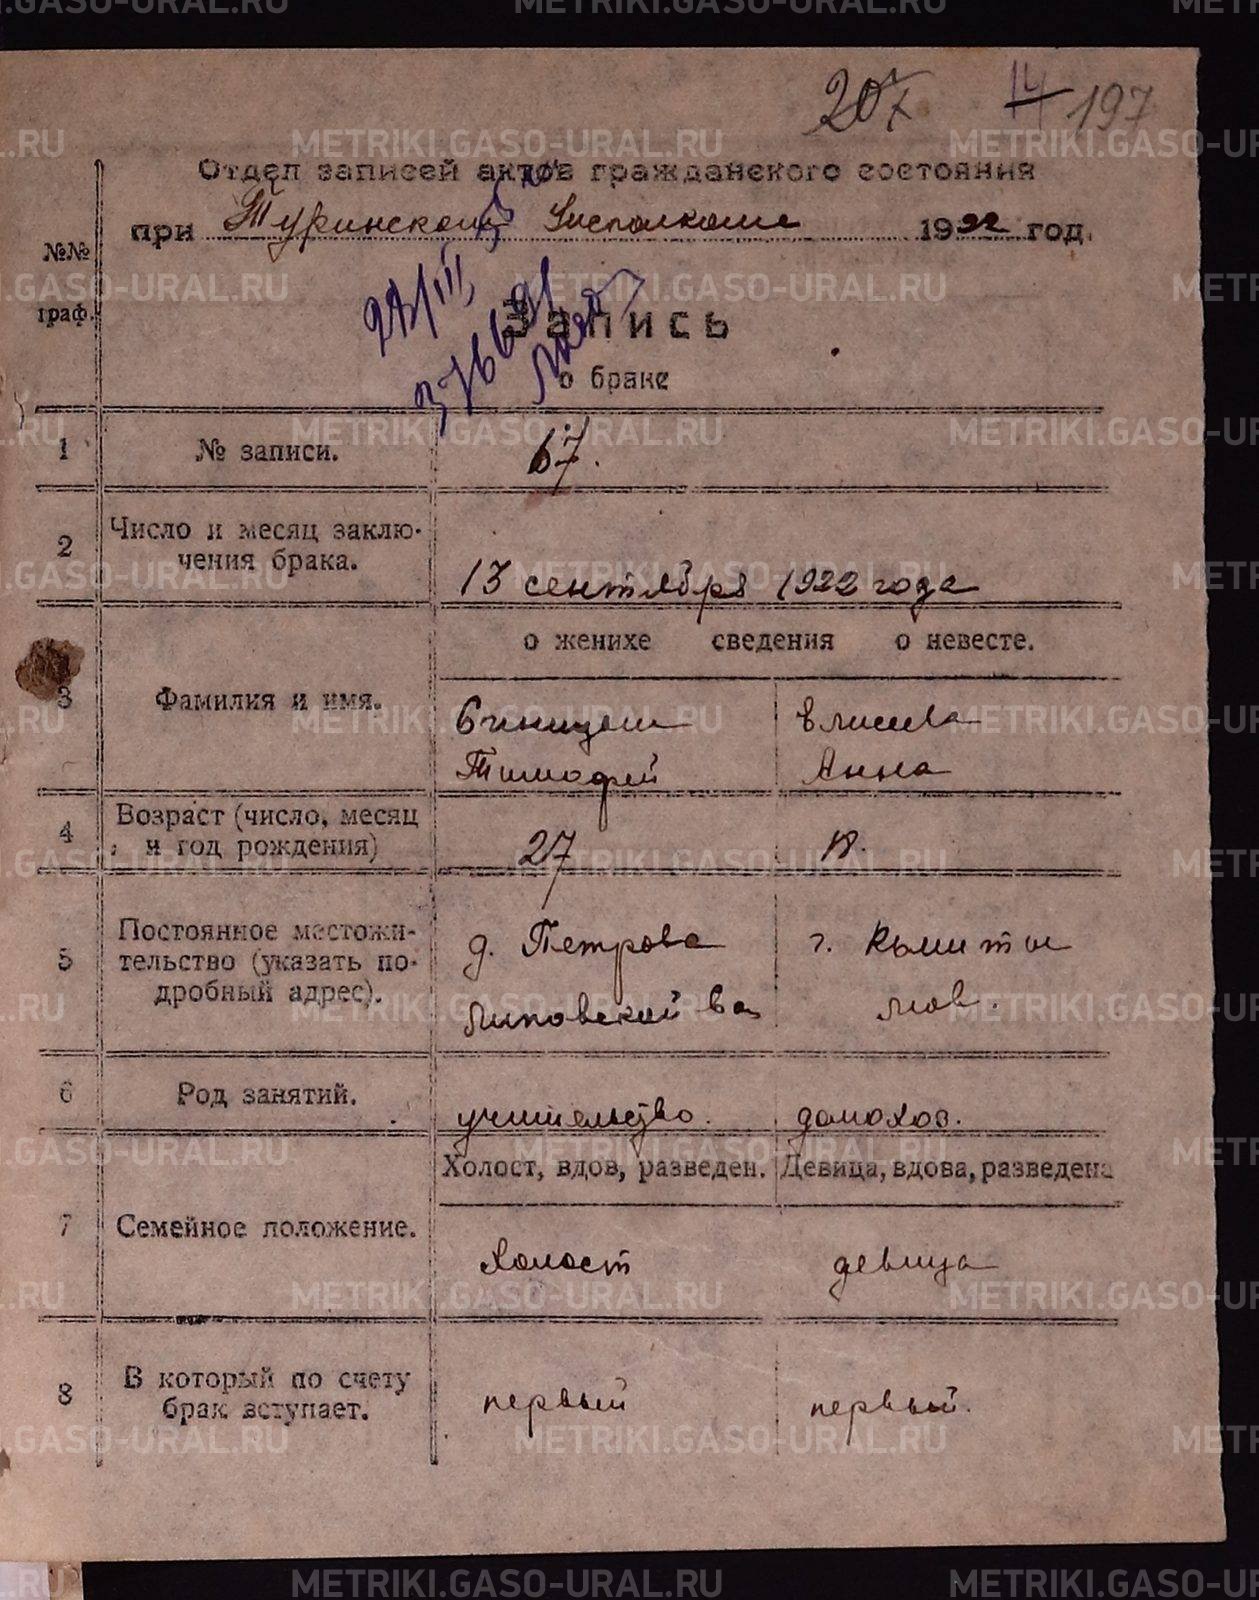 207 14 197
Отдел записей актов гражданского состояния
при Туринском Исполкоме 1922 год.
№№
граф.
28/III
Запись
о браке
1 № записи. 67.
2 Число и месяц заклю-
чения брака.
13 сентября 1922 года
о женихе сведения о невесте.
3 Фамилия и имя.
Тимофей Анна
4 Возраст (число, месяц
и год рождения) 27 18.
5 Постоянное местожи-
тельство (указать по-
дробный адрес).
д. Петрова г.
Липовской лов.
6 Род занятий. учительство. домохоз.
Холост, вдов, разведен. Девица, вдова, разведена
7 Семейное положение.
Холост девица
8 В который по счету
брак вступает.
первый первый.
METRIKI.GASO-URAL.RU